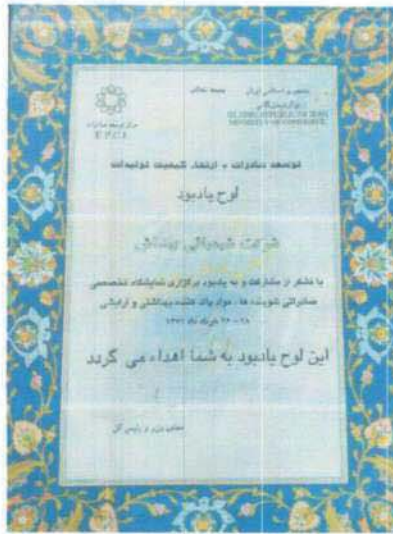 بسمه تعالی
جمهوری اسلامی ایران
وزارت بازرگانی
ISLAMIC REPUBLIC OF IRAN
MINISTRY OF COMMERCE
مرکز توسعه صادرات
E.P.C.I.
توسعه صادرات = ارتقاء کیفیت تولیدات
لوح یادبود
شرکت شیمیائی بهداش
با تشکر از مشارکت و به یادبود برگزاری نمایشگاه تخصصی
صادراتی شوینده ها ، مواد پاک کننده بهداشتی و آرایشی
خرداد ماه ۱۳۷۱
این لوح یادبود به شما اهداء می گردد
معاون وزیر و رئیس کل